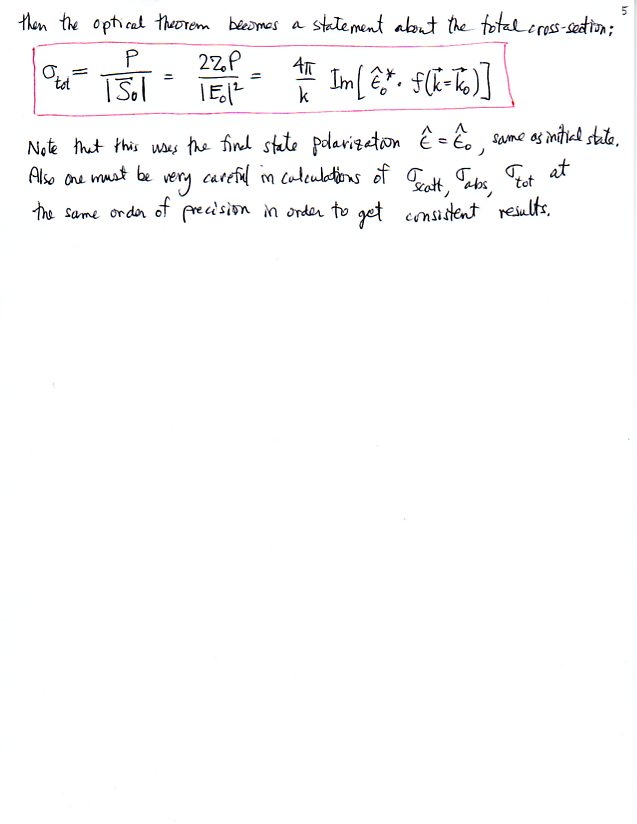 5
then the optical theorem becomes a statement about the total cross-section:
σ_tot = P / |S̄₀| = 2Z₀P / |E₀|² = 4π/k Im[ ε̂₀* · f⃗(k⃗=k⃗₀) ]
Note that this uses the final state polarization ε̂ = ε̂₀, same as initial state.
Also one must be very careful in calculations of σ_scatt, σ_abs, σ_tot at
the same order of precision in order to get consistent results.